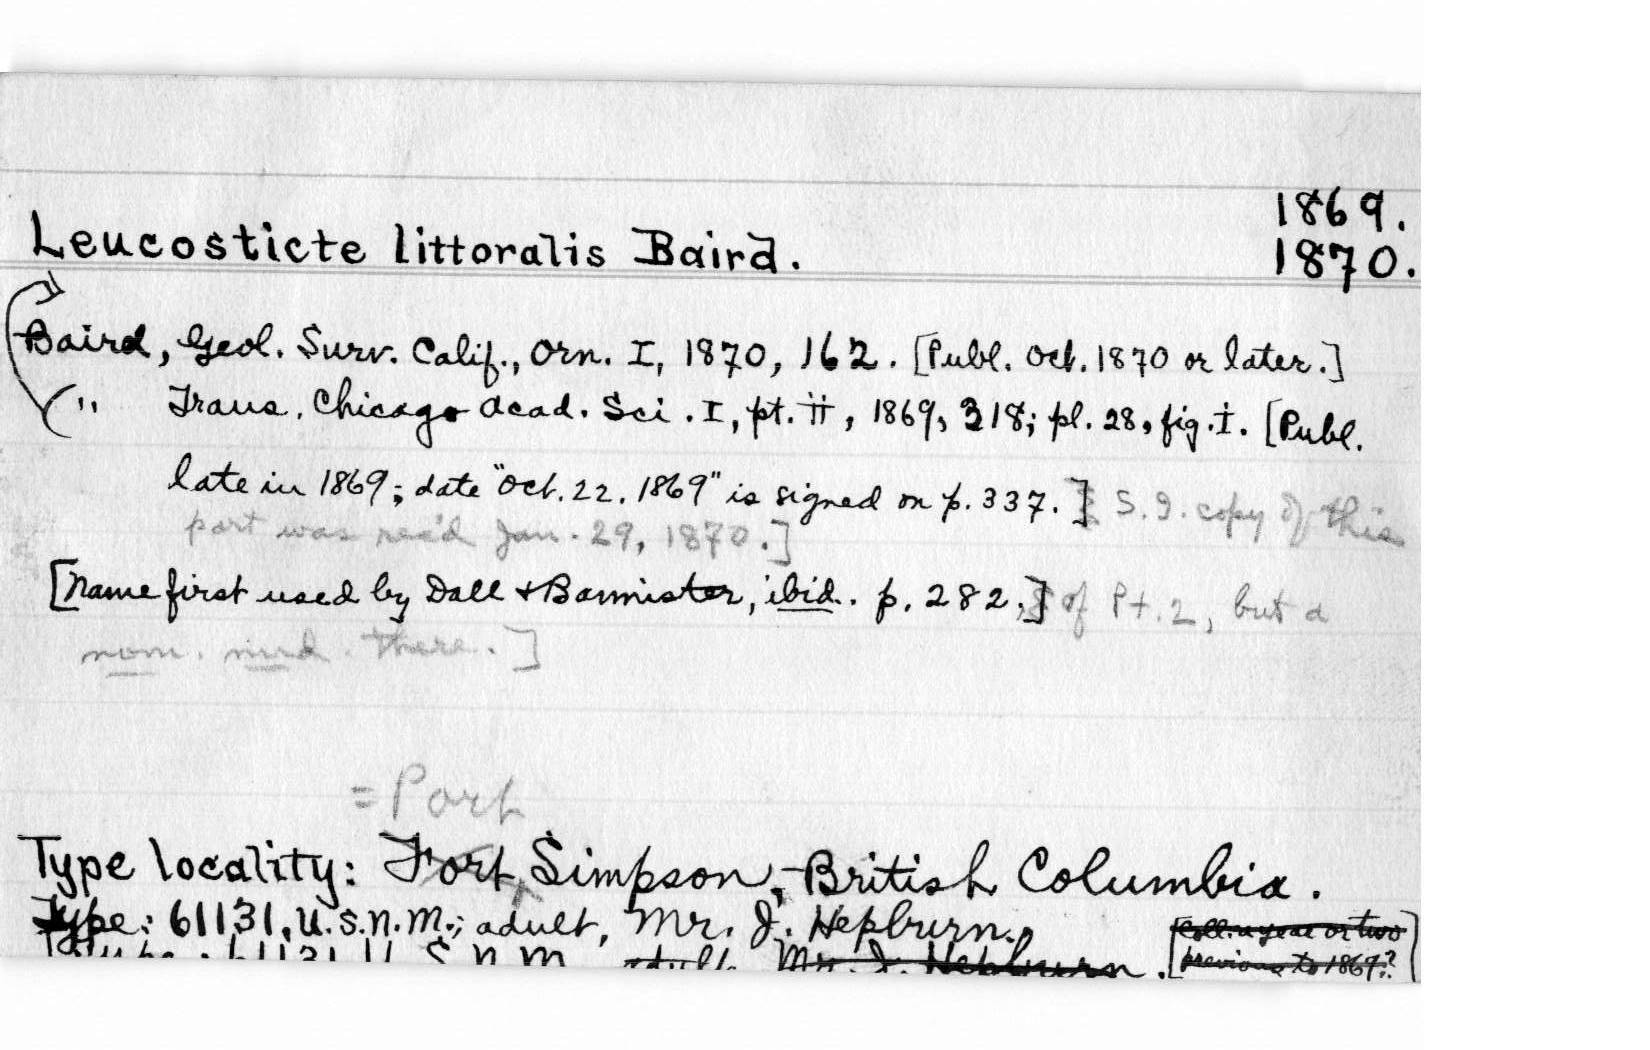 1869.
Leucosticte littoralis Baird.
1870.
Baird, Geol. Surv. Calif., Orn. I, 1870, 162. [Publ. Oct. 1870 or later.]
" Trans. Chicago Acad. Sci. I, pt. ii, 1869, 318; pl. 28, fig. i. [Publ.
late in 1869; date "Oct. 22. 1869" is signed on p. 337.] S.I. copy of this
part was rec'd Jan. 29, 1870.]
[Name first used by Dall & Bannister, ibid. p. 282,] of Pt. 2, but a
nom. nud. there.]
= Port
Type locality: Fort Simpson, British Columbia.
Type: 61131, U.S.N.M.; adult, Mr. J. Hepburn.
[Coll. a year or two
Type: 61131 U.S.N.M. adult Mr. J. Hepburn.
previous to 1869?]